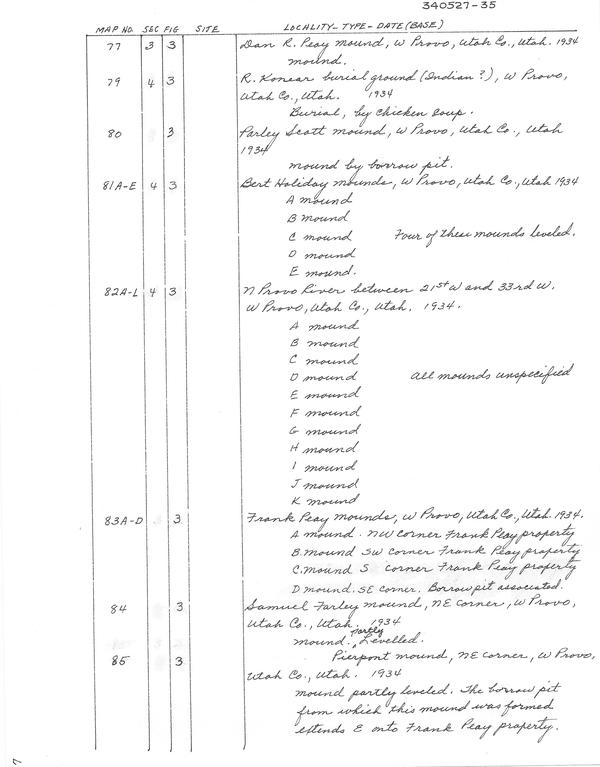 340527-35
MAP NO. SEC FIG SITE LOCALITY - TYPE - DATE (BASE)
77 3 3 Dan R. Peay mound, W Provo, Utah Co., Utah. 1934
mound.
79 4 3 R. Konear burial ground (Indian?), W Provo,
Utah Co., Utah. 1934
Burial, by Chicken Soup.
80 3 Parley Scott mound, W Provo, Utah Co., Utah
1934
mound by borrow pit.
81A-E 4 3 Bert Holiday mounds, W Provo, Utah Co., Utah 1934
A mound
B mound
C mound Four of these mounds leveled.
D mound
E mound.
82A-L 4 3 N Provo River between 21st W and 33rd W.
W Provo, Utah Co., Utah. 1934.
A mound
B mound
C mound
D mound all mounds unspecified
E mound
F mound
G mound
H mound
I mound
J mound
K mound
83A-D 3 Frank Peay mounds, W Provo, Utah Co., Utah. 1934.
A mound. NW corner Frank Peay property
B. mound SW corner Frank Peay property
C. mound S corner Frank Peay property
D mound. SE corner. Borrow pit associated.
84 3 Samuel Farley mound, NE corner, W Provo,
Utah Co., Utah. 1934
mound. partly Levelled.
85 3 Pierpont mound, NE corner, W Provo,
Utah Co., Utah. 1934
mound partly leveled. The borrow pit
from which this mound was formed
extends E onto Frank Peay property.
7